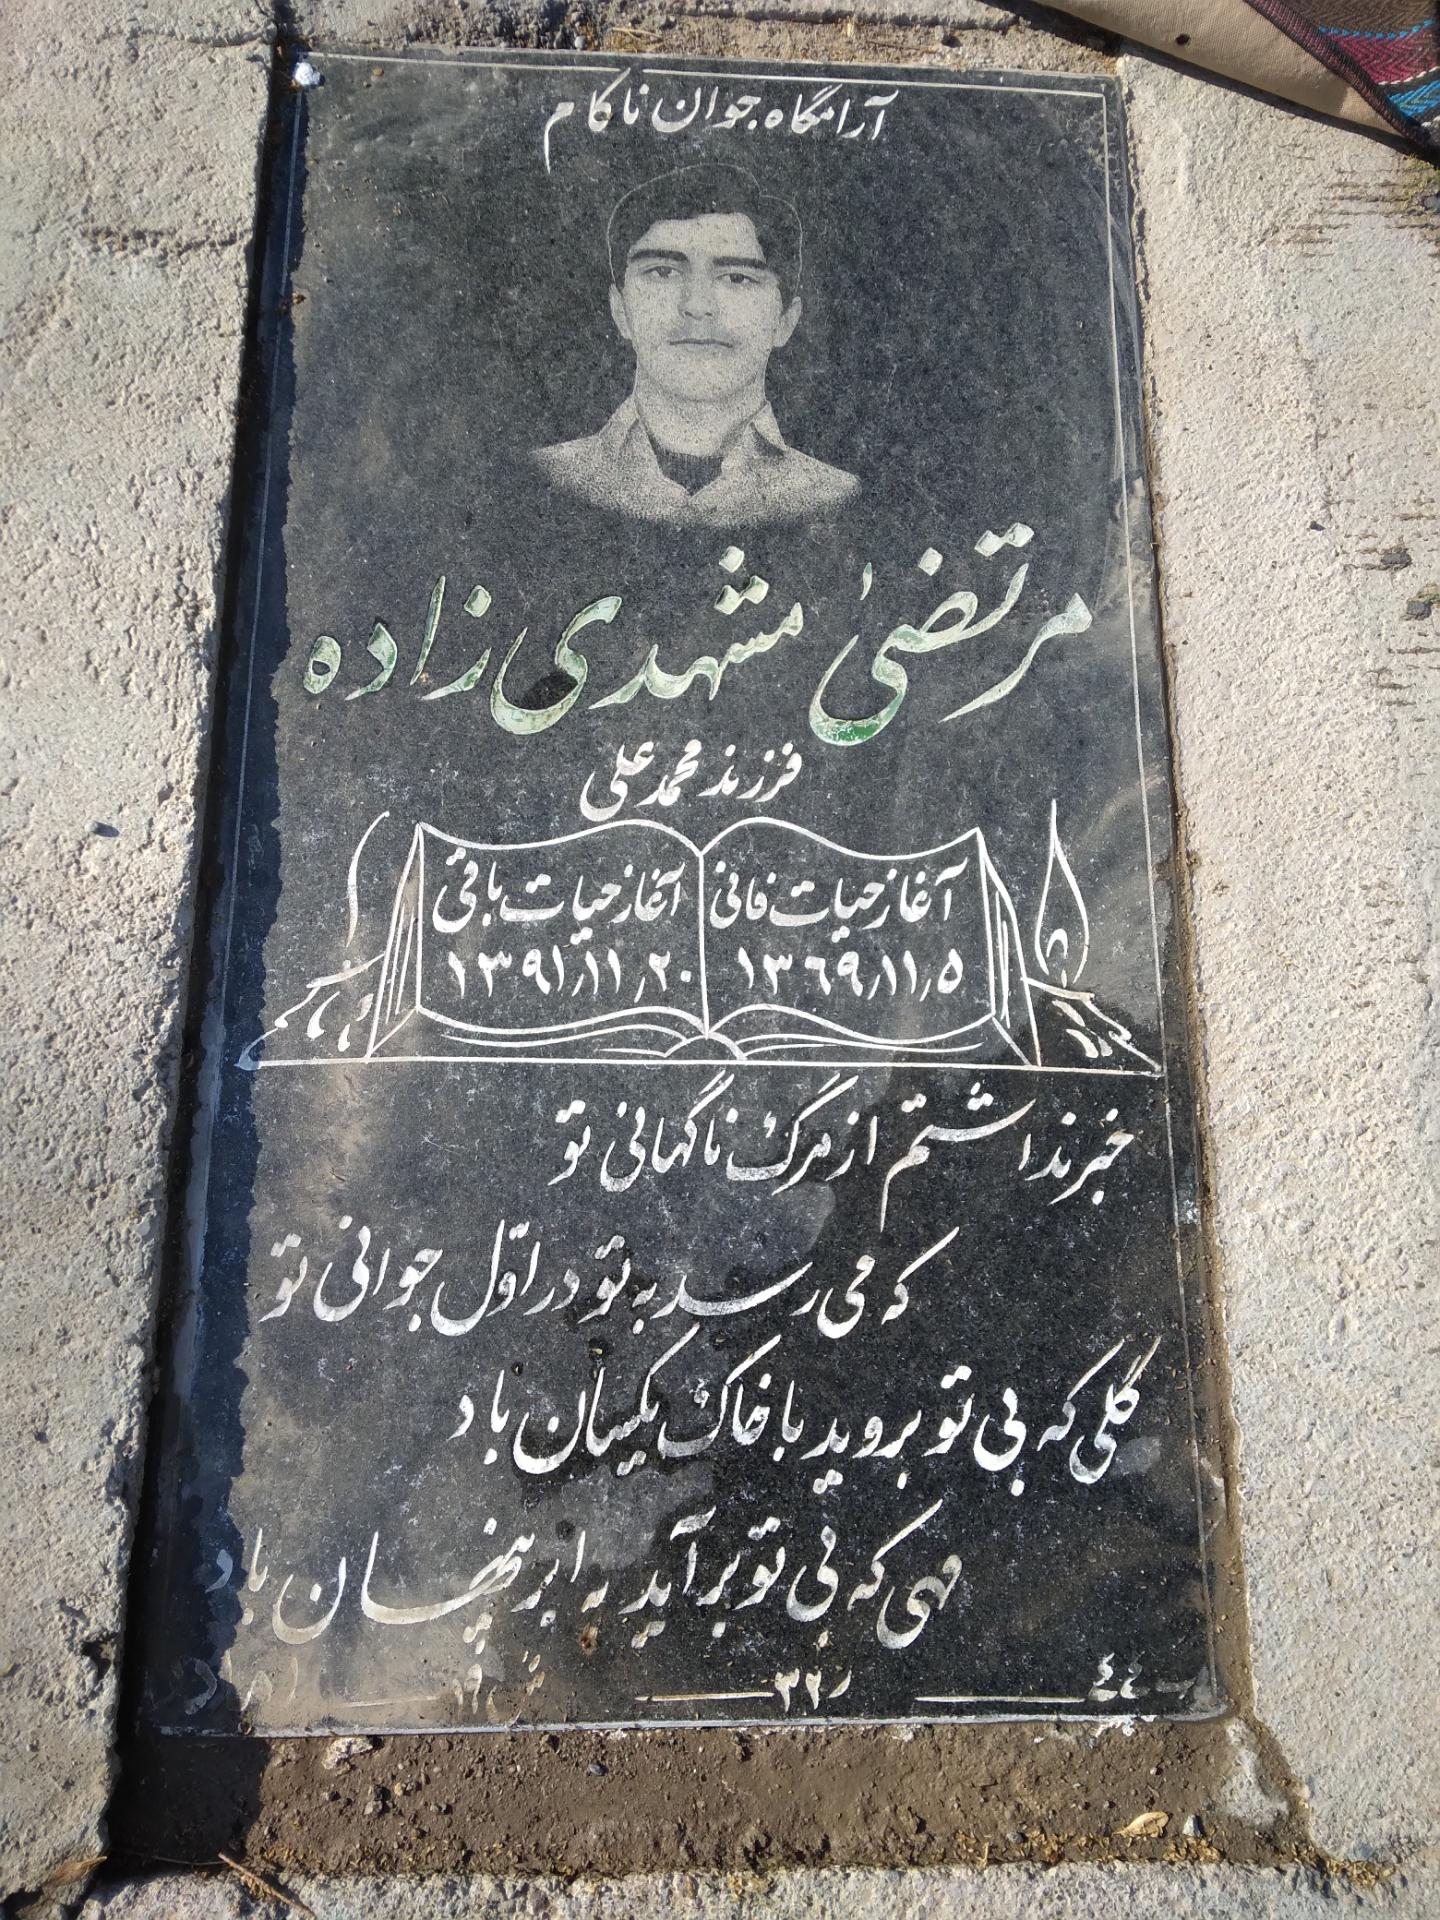 آرامگاه جوان ناکام
مرتضیٰ مشهدی زاده
فرزند محمد علی
آغاز حیات فانی
۱۳۶۹٫۱۱٫۵
آغاز حیات باقی
۱۳۹۱٫۱۱٫۲۰
خبر نداشتم از مرگ ناگهانی تو
که می رسد به تو در اوّل جوانی تو
گلی که بی تو بروید با خاک یکسان باد
مهی که بی تو برآید به ابر پنهان باد
ب ٤٤ ر ۳۲